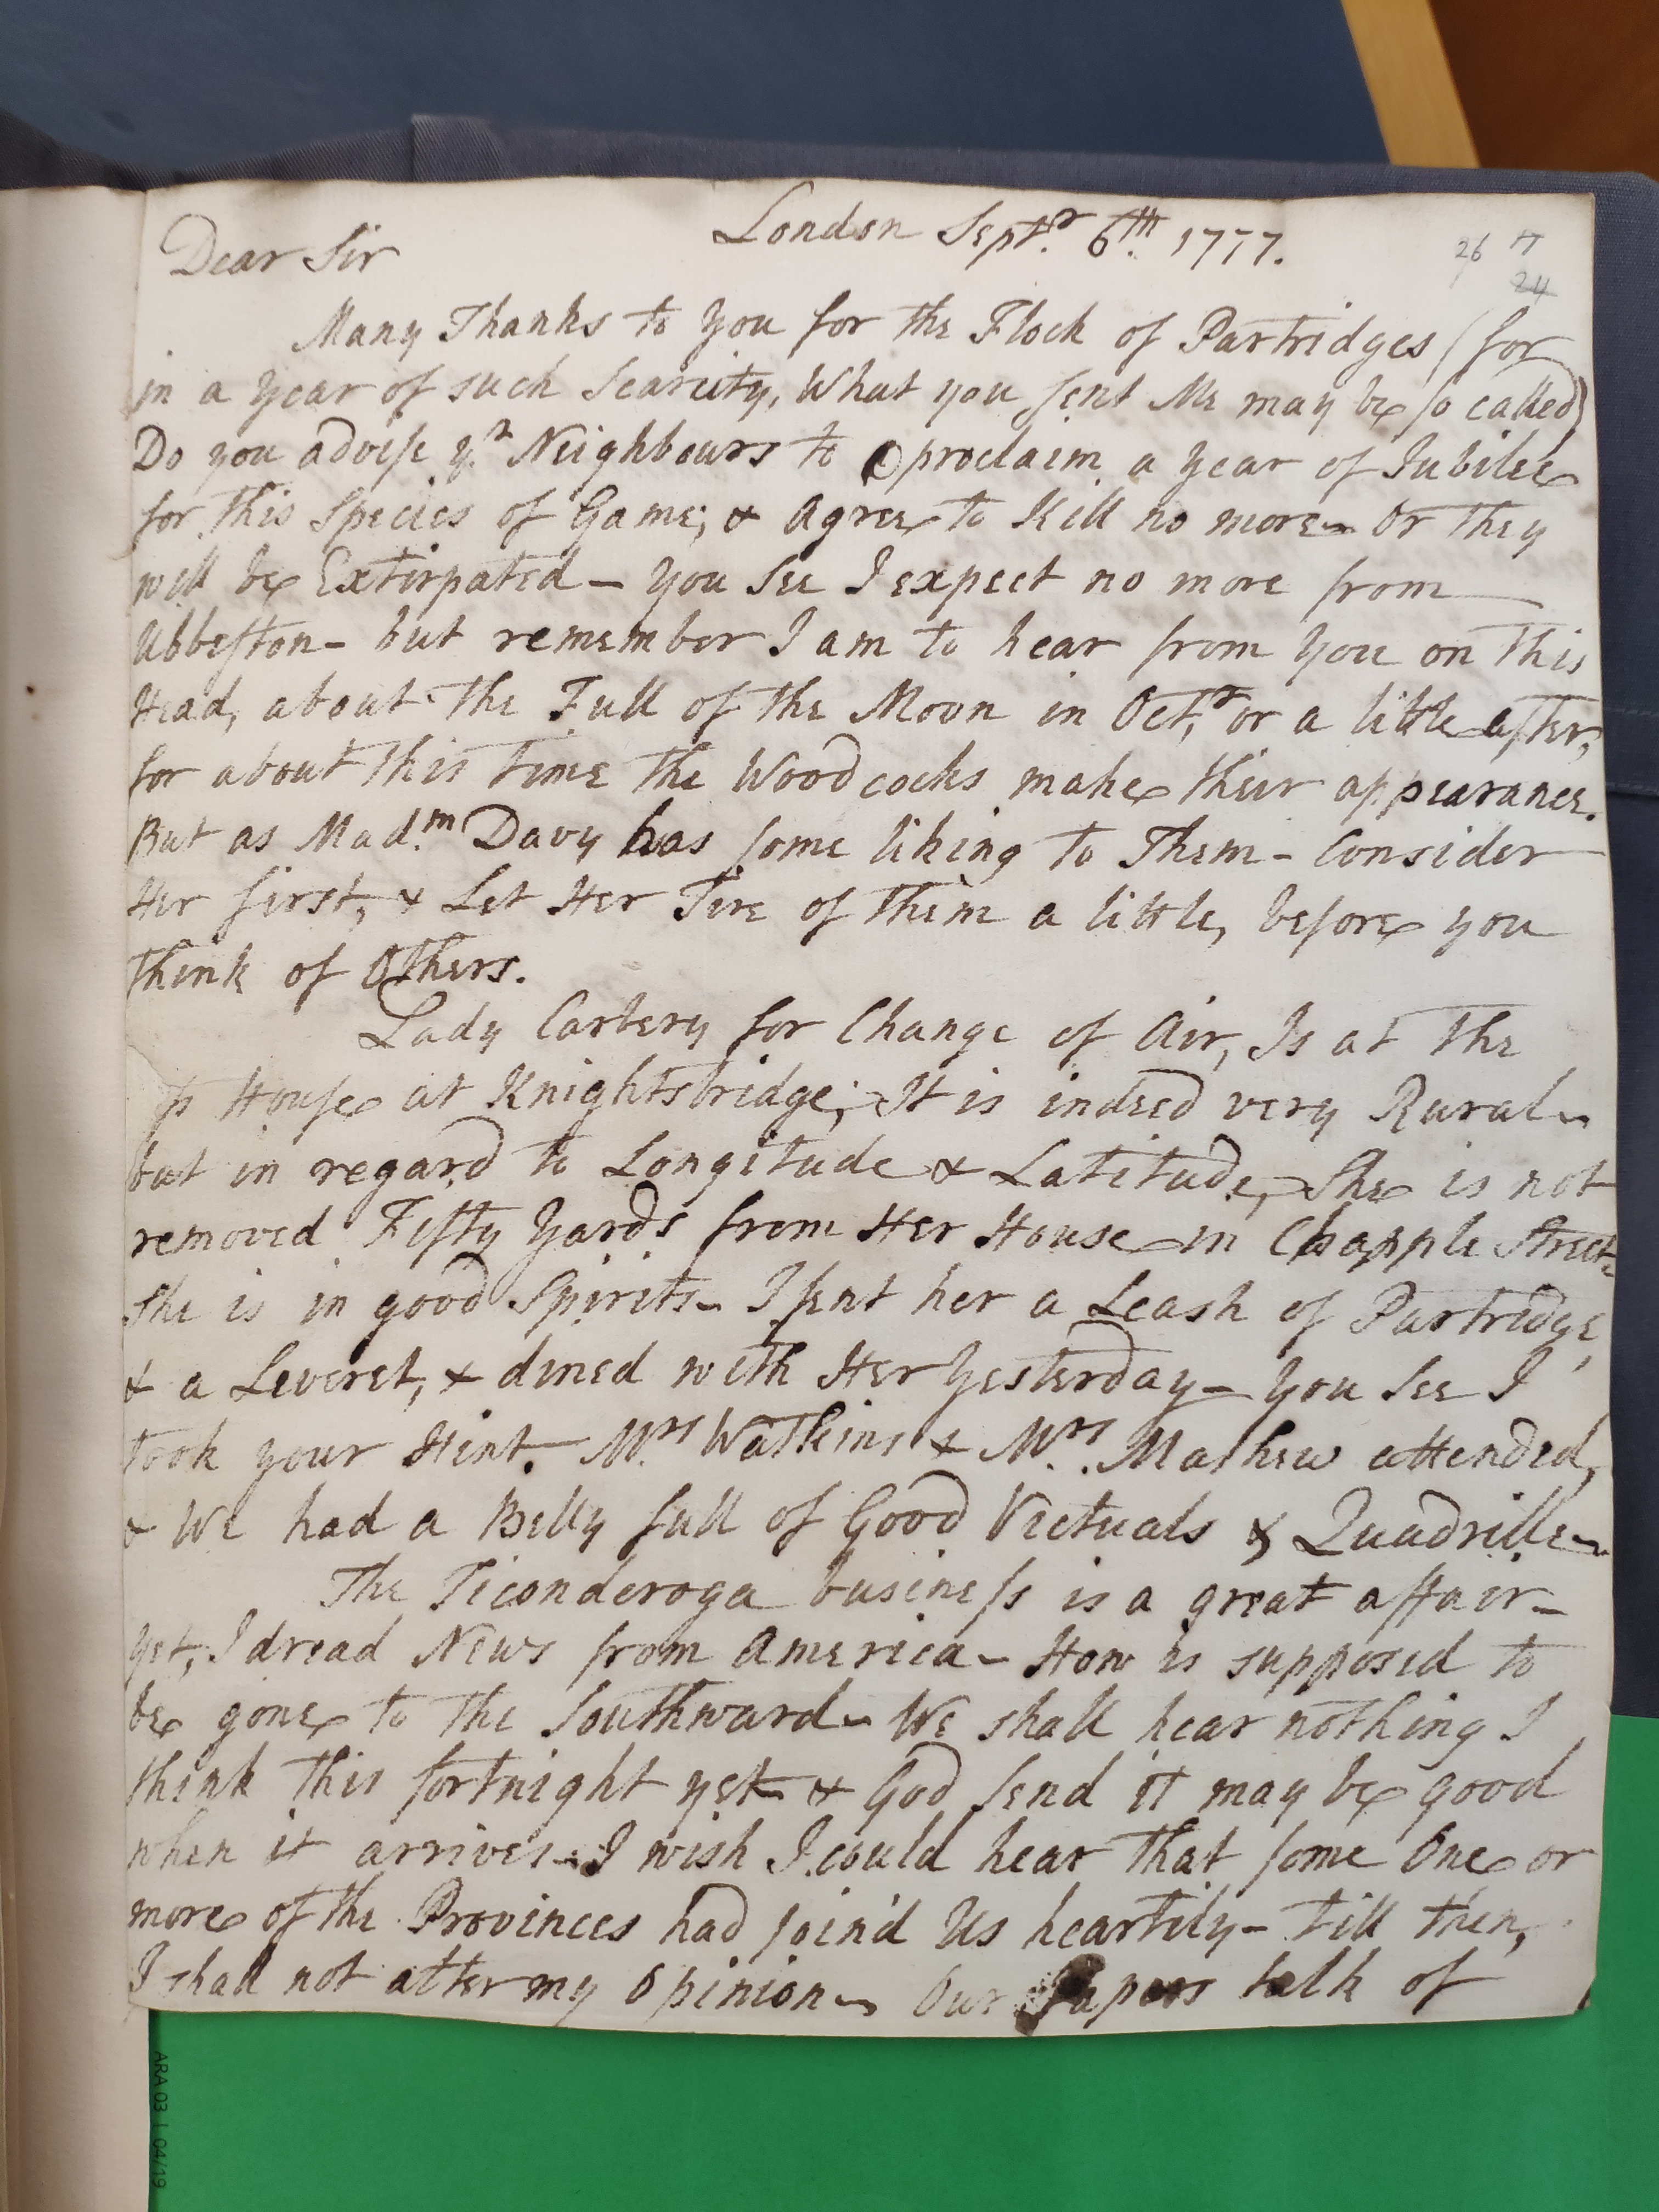 London Septr. 6th. 1777.
26 17
24
Dear Sir
Many Thanks to you for the Flock of Partridges (for
in a year of such Scarcity, What you sent Me may be so called)
Do you advise yr. Neighbours to proclaim a year of Jubilee
for this Species of Game; & Agree to Kill no more - Or they
will be Extirpated - you see I expect no more from
Ubbeston - but remember I am to hear from you on this
Head, about the Full of the Moon in Octr, or a little after,
for about this time the Woodcocks make their appearance.
But as Madm. Davy has some liking to Them - Consider
Her first, & Let Her Tire of them a little, before you
think of Others.
Lady Carbery for Change of Air, Is at the
House at Knightsbridge; It is indeed very Rural -
but in regard to Longitude & Latitude, She is not
removed Fifty Yards from Her House in Chapple Street -
She is in good Spirits - I sent her a Leash of Partridge,
& a Leveret, & dined with Her Yesterday - you see I
took your Hint. Mrs. Watkins & Mrs. Mathew attended,
& We had a Belly full of Good Victuals & Quadrille -
The Ticonderoga business is a great affair -
yet, I dread News from America - How is supposed to
be gone to the Southward - We shall hear nothing I
think this fortnight yet - & God send it may be good
when it arrives - I wish I could hear that some One or
more of the Provinces had join'd Us heartily - till then,
I shall not alter my Opinion - Our Papers talk of
ARA 03 1 04/19